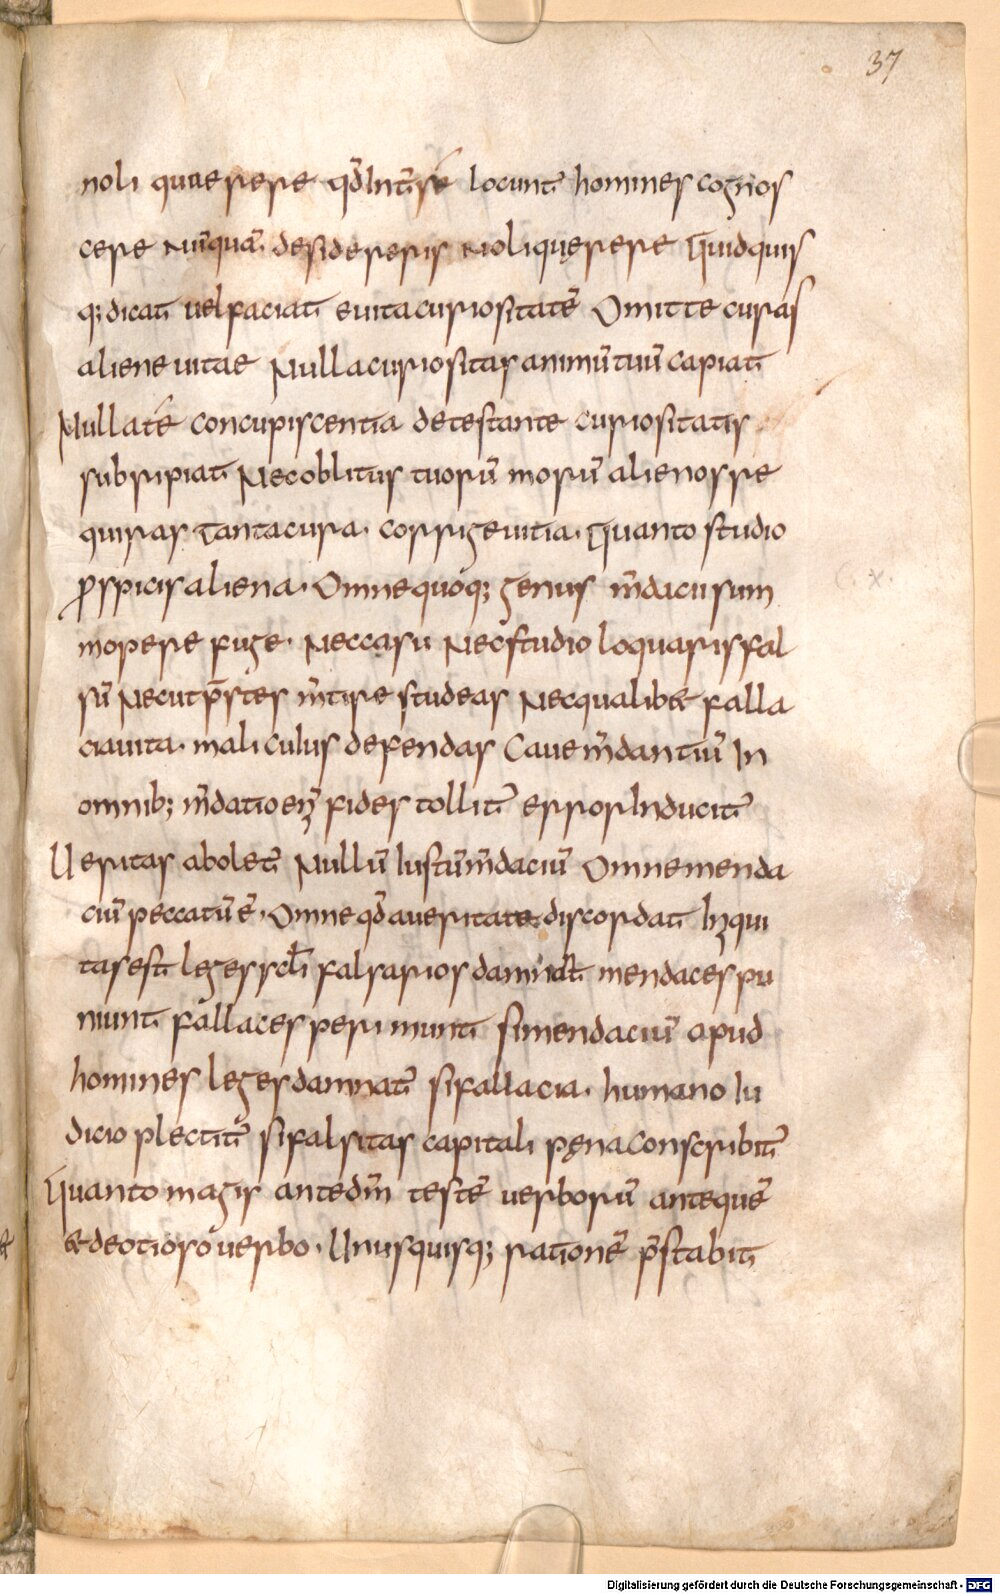 37
noli quaerere qđ Int̄ se locunt̄ homines cognos
cere Nūquā. desidereris Noli quęrere Quid quis
q; dicat vel faciat evita curiositatē Omitte curas
aliene vitae Nulla curiositas animū tuū capiat
Nulla te concupiscentia detestante curiositatis
subripiat Nec oblitus tuorū morū alienos re
quiras Tanta cura. corrige vitia. Quanto studio
ꝓspicis aliena. Omne quoq; genus m̄dacii sum
mopere fuge. Nec casu Nec studio loquaris fal
sū Nec ut p̄stes m̄tire studeas Nec qualib& falla
cia vita. mali culus defendas Cave m̄dantiū In
omnib; m̄datio enī fides tollit̄ error Inducit̄
Veritas abolet̄ Nullū Iustū m̄daciū Omne menda
ciū peccatū ē. Omne qđ a veritate. discordat Inɜqui
tas est leges scłi falsarios damnat mendaces pu
niunt fallaces perimunt si mendaciū apud
homines leges damnat̄ si fallacia. humano Iu
dicio plectit̄ si falsitas capitali pęna conscribit̄
Quanto magis ante dm̄ testē verborū ante quē
& de otioso verbo. Unusquisq; rationē p̄stabit
Digitalisierung gefördert durch die Deutsche Forschungsgemeinschaft - DFG